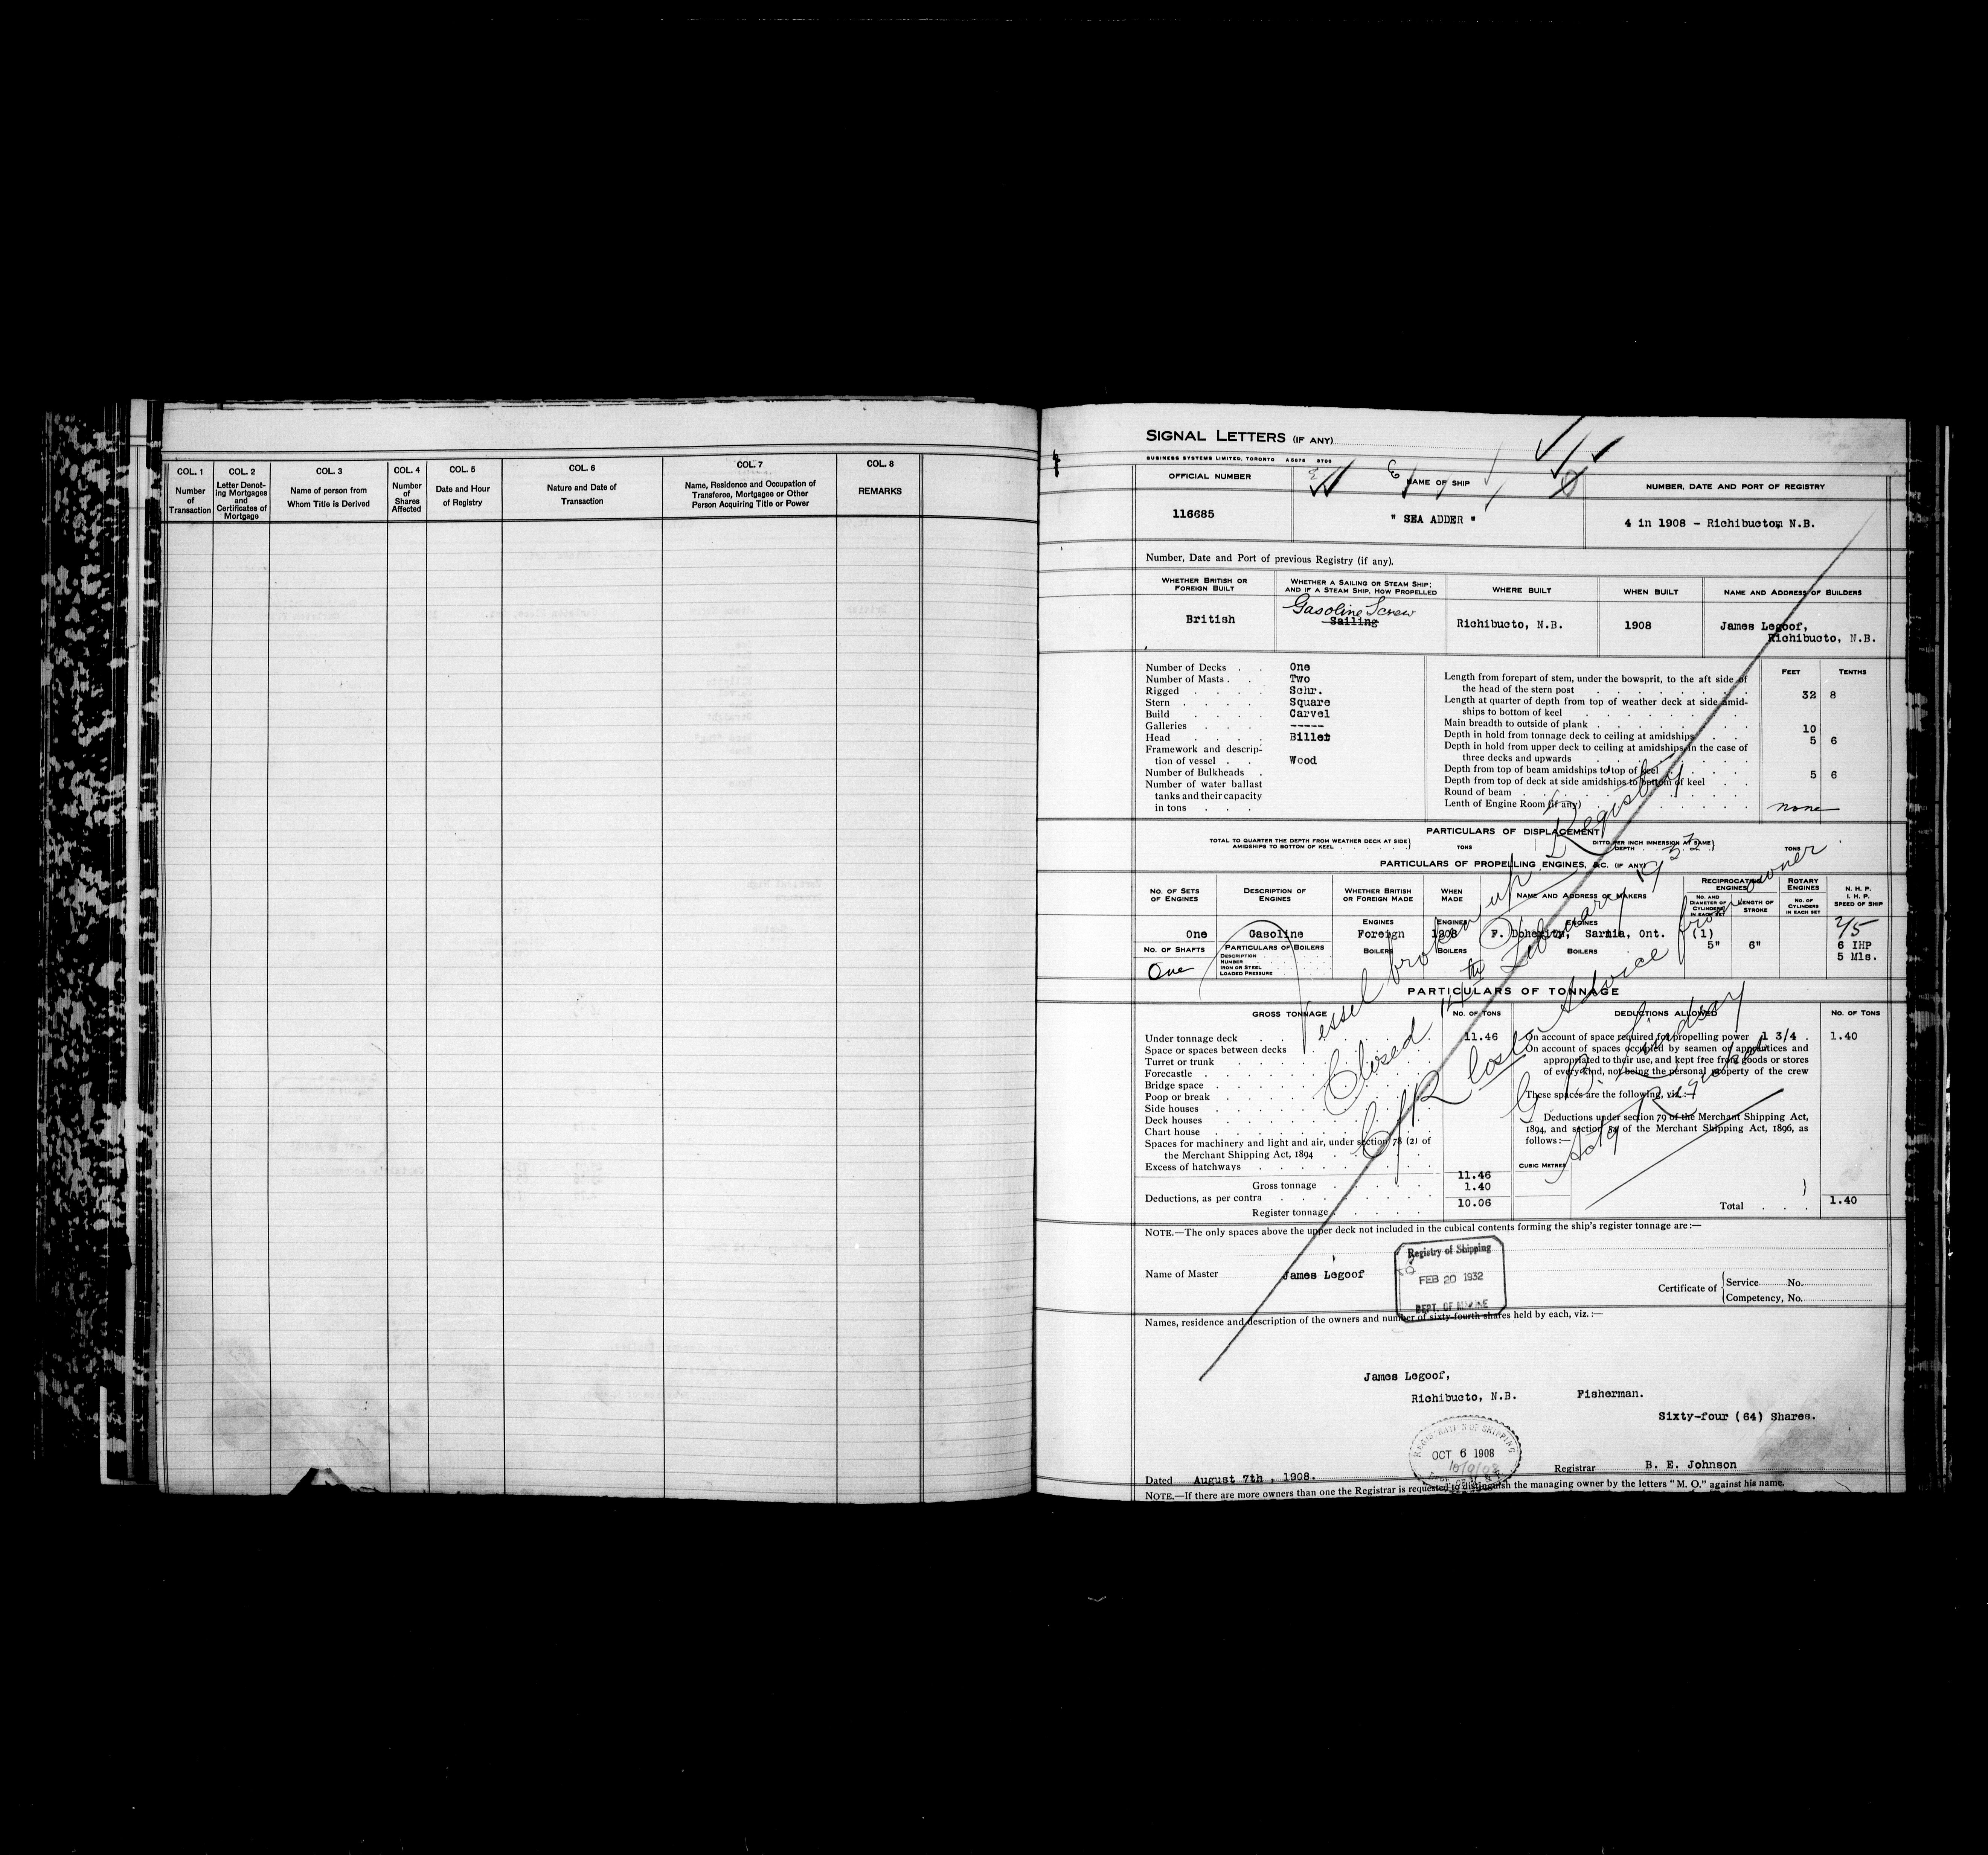 COL. 1
Number
of
Transaction
COL. 2
Letter Denot-
ing Mortgages
and
Certificates of
Mortgage
COL. 3
Name of person from
Whom Title is Derived
COL. 4
Number
of
Shares
Affected
COL. 5
Date and Hour
of Registry
COL. 6
Nature and Date of
Transaction
COL. 7
Name, Residence and Occupation of
Transferee, Mortgagee or Other
Person Acquiring Title or Power
COL. 8
REMARKS
SIGNAL LETTERS (IF ANY)
BUSINESS SYSTEMS LIMITED, TORONTO
OFFICIAL NUMBER
NAME OF SHIP
NUMBER, DATE AND PORT OF REGISTRY
116685
" SEA ADDER "
4 in 1908 - Richibucto, N.B.
Number, Date and Port of previous Registry (if any).
WHETHER BRITISH OR
FOREIGN BUILT
WHETHER A SAILING OR STEAM SHIP;
AND IF A STEAM SHIP, HOW PROPELLED
WHERE BUILT
WHEN BUILT
NAME AND ADDRESS OF BUILDERS
British
Gasoline Screw
Sailing
Richibucto, N.B.
1908
James Legoof,
Richibucto, N.B.
Number of Decks . . One
Number of Masts . . Two
Rigged . . . . Schr.
Stern . . . . Square
Build . . . . Carvel
Galleries . . . . -----
Head . . . . Billet
Framework and descrip-
tion of vessel . . Wood
Number of Bulkheads .
Number of water ballast
tanks and their capacity
in tons . .
FEET TENTHS
Length from forepart of stem, under the bowsprit, to the aft side of
the head of the stern post 32 8
Length at quarter of depth from top of weather deck at side amid-
ships to bottom of keel
Main breadth to outside of plank 10
Depth in hold from tonnage deck to ceiling at amidships 5 6
Depth in hold from upper deck to ceiling at amidships, in the case of
three decks and upwards
Depth from top of beam amidships to top of keel 5 6
Depth from top of deck at side amidships to bottom of keel
Round of beam
Lenth of Engine Room (if any) none
PARTICULARS OF DISPLACEMENT
TOTAL TO QUARTER THE DEPTH FROM WEATHER DECK AT SIDE
AMIDSHIPS TO BOTTOM OF KEEL TONS
DITTO PER INCH IMMERSION AT SAME
DEPTH TONS
PARTICULARS OF PROPELLING ENGINES, &C. (IF ANY)
NO. OF SETS
OF ENGINES
DESCRIPTION OF
ENGINES
WHETHER BRITISH
OR FOREIGN MADE
WHEN
MADE
NAME AND ADDRESS OF MAKERS
RECIPROCATING
ENGINES
NO. AND
DIAMETER OF
CYLINDERS
IN EACH SET
LENGTH OF
STROKE
ROTARY
ENGINES
NO. OF
CYLINDERS
IN EACH SET
N. H. P.
I. H. P.
SPEED OF SHIP
ENGINES ENGINES ENGINES
One Gasoline Foreign 1908 F. Doherity, Sarnia, Ont. (1)
5" 6"
6 IHP
5 Mls.
NO. OF SHAFTS
One
PARTICULARS OF BOILERS
DESCRIPTION
NUMBER
IRON OR STEEL
LOADED PRESSURE
BOILERS BOILERS BOILERS
Vessel broken up. Registry
Closed 14th February 1932
C/R lost. Advice from owner
G. B. Lindsay
Actg Registrar
PARTICULARS OF TONNAGE
GROSS TONNAGE NO. OF TONS
Under tonnage deck 11.46
Space or spaces between decks
Turret or trunk
Forecastle
Bridge space
Poop or break
Side houses
Deck houses
Chart house
Spaces for machinery and light and air, under section 78 (2) of
the Merchant Shipping Act, 1894
Excess of hatchways
Gross tonnage 11.46
Deductions, as per contra 1.40
Register tonnage 10.06
DEDUCTIONS ALLOWED NO. OF TONS
On account of space required for propelling power 1 3/4 . 1.40
On account of spaces occupied by seamen or apprentices and
appropriated to their use, and kept free from goods or stores
of every kind, not being the personal property of the crew
These spaces are the following, viz.:—
Deductions under section 79 of the Merchant Shipping Act,
1894, and section 54 of the Merchant Shipping Act, 1896, as
follows:—
CUBIC METRES
Total . . . 1.40
NOTE.—The only spaces above the upper deck not included in the cubical contents forming the ship's register tonnage are:—
Registry of Shipping
FEB 20 1932
DEPT. OF MARINE
Name of Master James Legoof
Certificate of
Service No.
Competency, No.
Names, residence and description of the owners and number of sixty-fourth shares held by each, viz.:—
James Legoof,
Richibucto, N.B. Fisherman.
Sixty-four (64) Shares.
REGISTRATION OF SHIPPING
OCT 6 1908
Dated August 7th, 1908.
Registrar B. E. Johnson
NOTE.—If there are more owners than one the Registrar is requested to distinguish the managing owner by the letters "M. O." against his name.